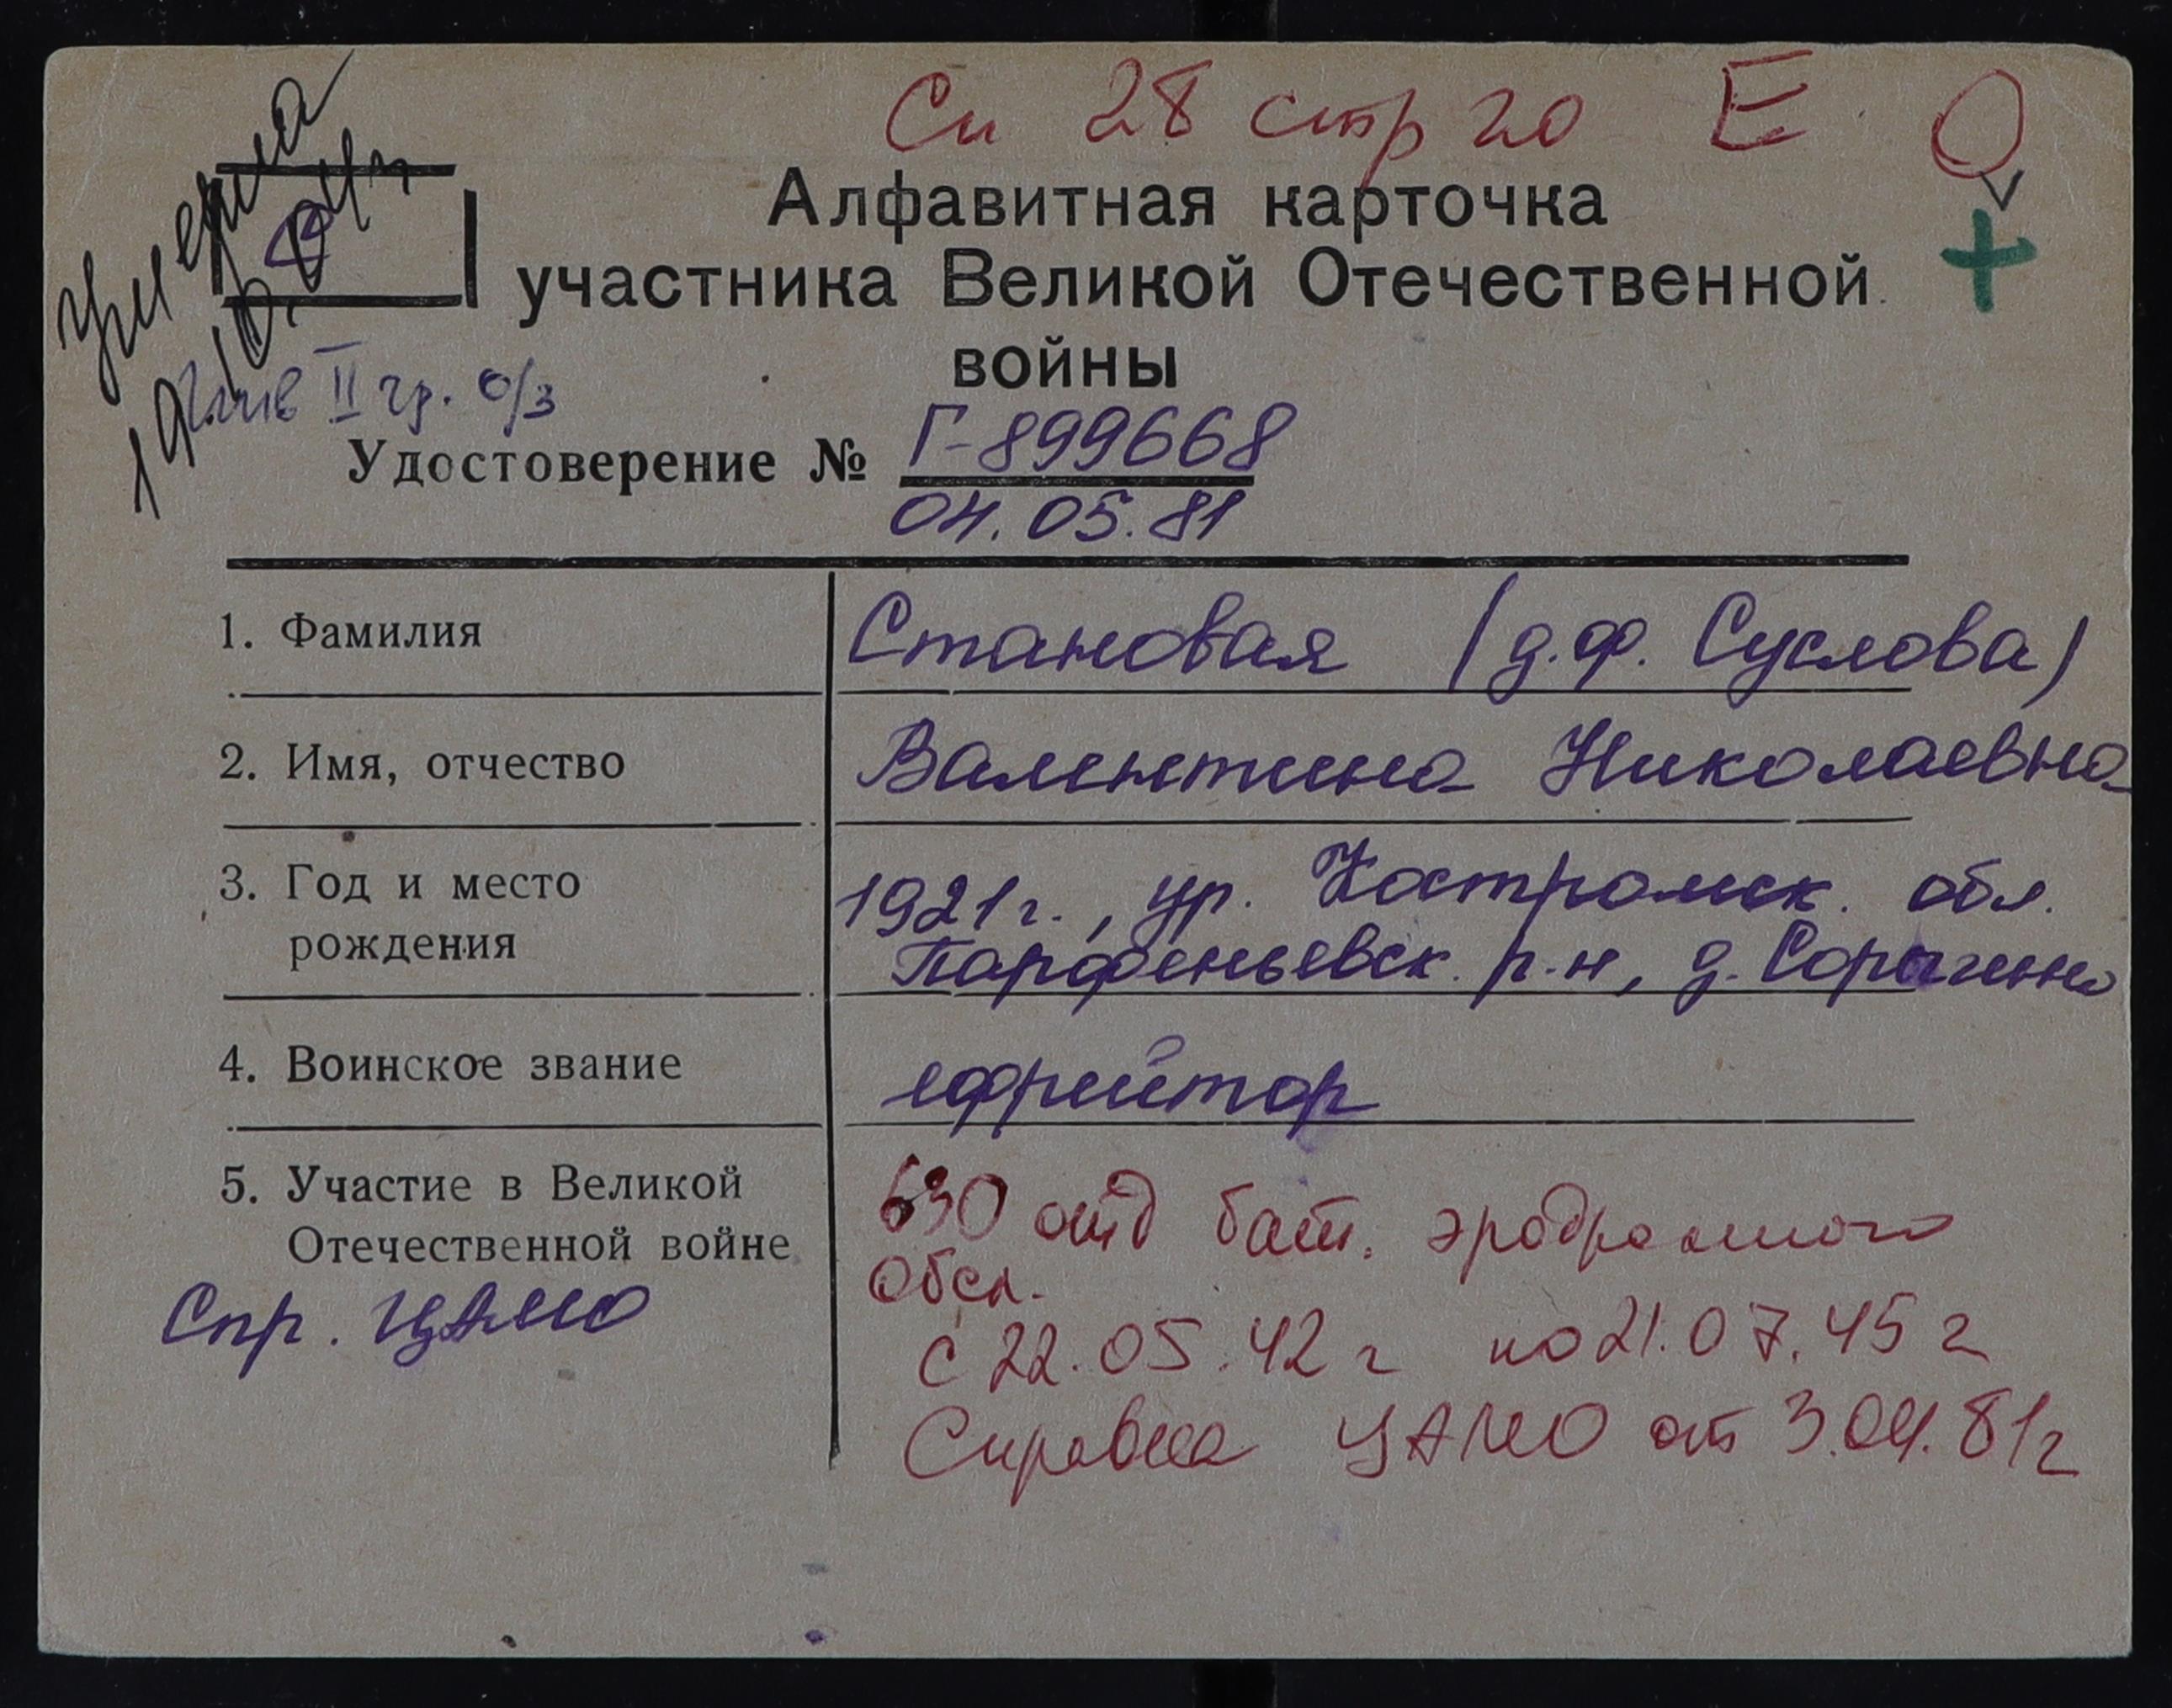 Сп 28 стр 20 Е О
Умерла
19.10.04г.
С
Алфавитная карточка
участника Великой Отечественной
войны
инв II гр. о/з
Удостоверение № Г-899668
04.05.81
1. Фамилия
Становая (д.ф. Суслова)
2. Имя, отчество
Валентина Николаевна
3. Год и место
рождения
1921г., ур. Костромск. обл.
Парфеньевск. р-н, д.
4. Воинское звание
ефрейтор
5. Участие в Великой
Отечественной войне
Спр. ЦАМО
630 отд бат. эродромного
обсл.
с 22.05.42 г по 21.07.45 г
Справка ЦАМО от 3.04.81г